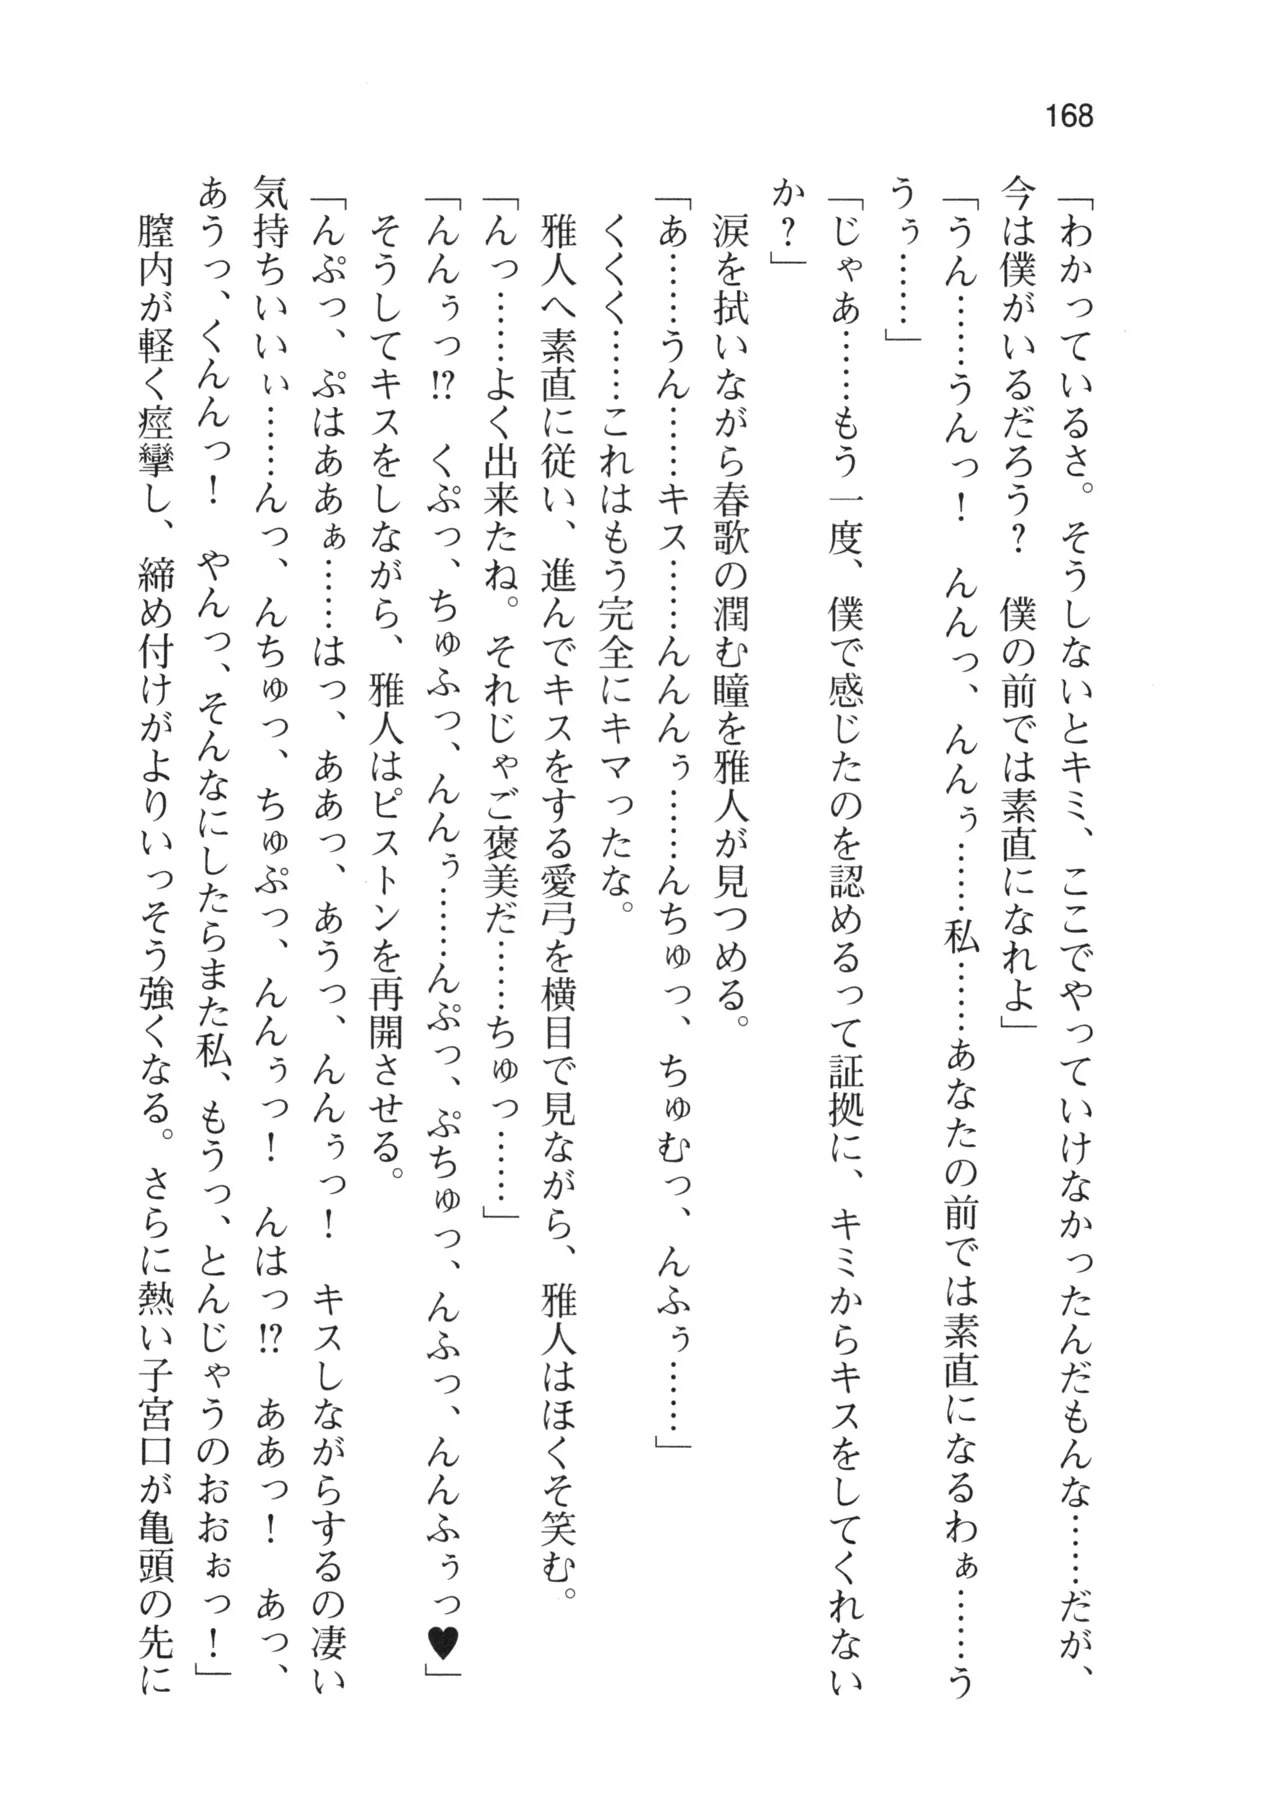 168
「わかっているさ。そうしないとキミ、ここでやっていけなかったんだもんな……だが、
今は僕がいるだろう？　僕の前では素直になれよ」
「うん……うんっ！　んんっ、んんぅ……私……あなたの前では素直になるわぁ……う
うぅ……」
「じゃあ……もう一度、僕で感じたのを認めるって証拠に、キミからキスをしてくれない
か？」
　涙を拭いながら春歌の潤む瞳を雅人が見つめる。
「あ……うん……キス……んんんぅ……んちゅっ、ちゅむっ、んふぅ……」
　くくく……これはもう完全にキマったな。
　雅人へ素直に従い、進んでキスをする愛弓を横目で見ながら、雅人はほくそ笑む。
「んっ……よく出来たね。それじゃご褒美だ……ちゅっ……」
「んんぅっ!?　くぷっ、ちゅふっ、んんぅ……んぷっ、ぷちゅっ、んふっ、んんふぅっ♥」
　そうしてキスをしながら、雅人はピストンを再開させる。
「んぷっ、ぷはああぁ……はっ、ああっ、あうっ、んんぅっ！　キスしながらするの凄い
気持ちいいぃ……んっ、んちゅっ、ちゅぷっ、んんぅっ！　んはっ!?　ああっ！　あっ、
あうっ、くんんっ！　やんっ、そんなにしたらまた私、もうっ、とんじゃうのおおぉっ！」
　膣内が軽く痙攣し、締め付けがよりいっそう強くなる。さらに熱い子宮口が亀頭の先に